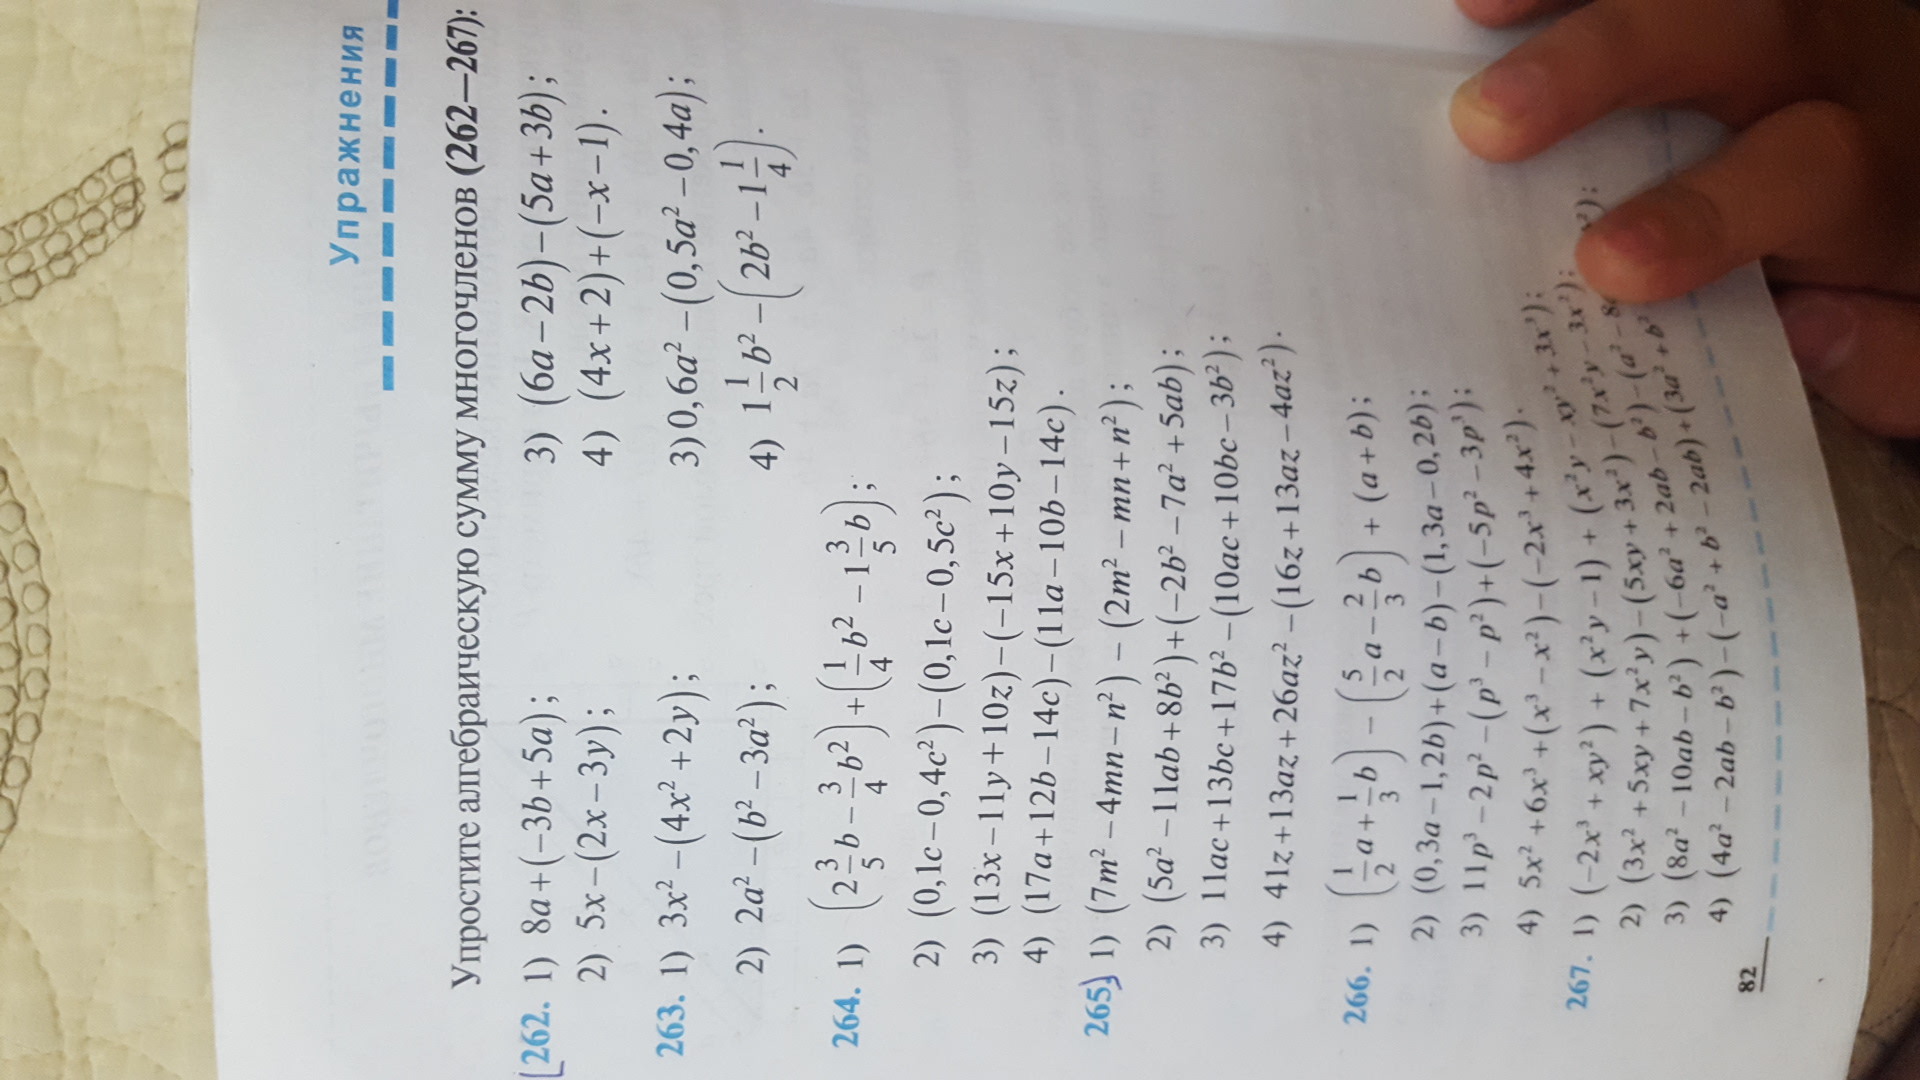 Упражнения
Упростите алгебраическую сумму многочленов (262—267):
262. 1) 8a+(−3b+5a); 3) (6a−2b)−(5a+3b);
2) 5x−(2x−3y); 4) (4x+2)+(−x−1).
263. 1) 3x²−(4x²+2y); 3) 0,6a²−(0,5a²−0,4a);
2) 2a²−(b²−3a²); 4) 1 1/2 b²−(2b²−1 1/4).
264. 1) (2 3/5 b−3/4 b²)+(1/4 b²−1 3/5 b);
2) (0,1c−0,4c²)−(0,1c−0,5c²);
3) (13x−11y+10z)−(−15x+10y−15z);
4) (17a+12b−14c)−(11a−10b−14c).
265. 1) (7m²−4mn−n²)−(2m²−mn+n²);
2) (5a²−11ab+8b²)+(−2b²−7a²+5ab);
3) 11ac+13bc+17b²−(10ac+10bc−3b²);
4) 41z+13az+26az²−(16z+13az−4az²).
266. 1) (1/2 a+1/3 b)−(5/2 a−2/3 b)+(a+b);
2) (0,3a−1,2b)+(a−b)−(1,3a−0,2b);
3) 11p³−2p²−(p³−p²)+(−5p²−3p³);
4) 5x²+6x³+(x³−x²)−(−2x³+4x²).
267. 1) (−2x³+xy²)+(x²y−1)+(x²y−xy²+3x³);
2) (3x²+5xy+7x²y)−(5xy+3x²)−(7x²y−3x²);
3) (8a²−10ab−b²)+(−6a²+2ab−b²)−(a²−8
4) (4a²−2ab−b²)−(−a²+b²−2ab)+(3a²+b²
82